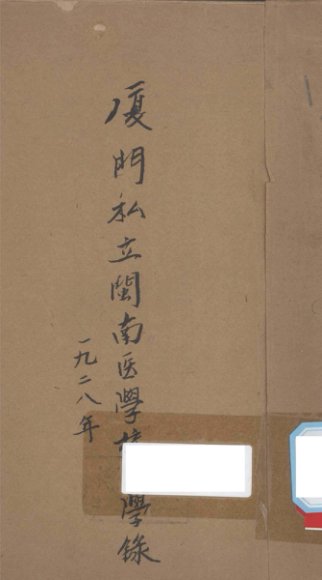 厦門私立閩南医學校 學錄
一九二八年